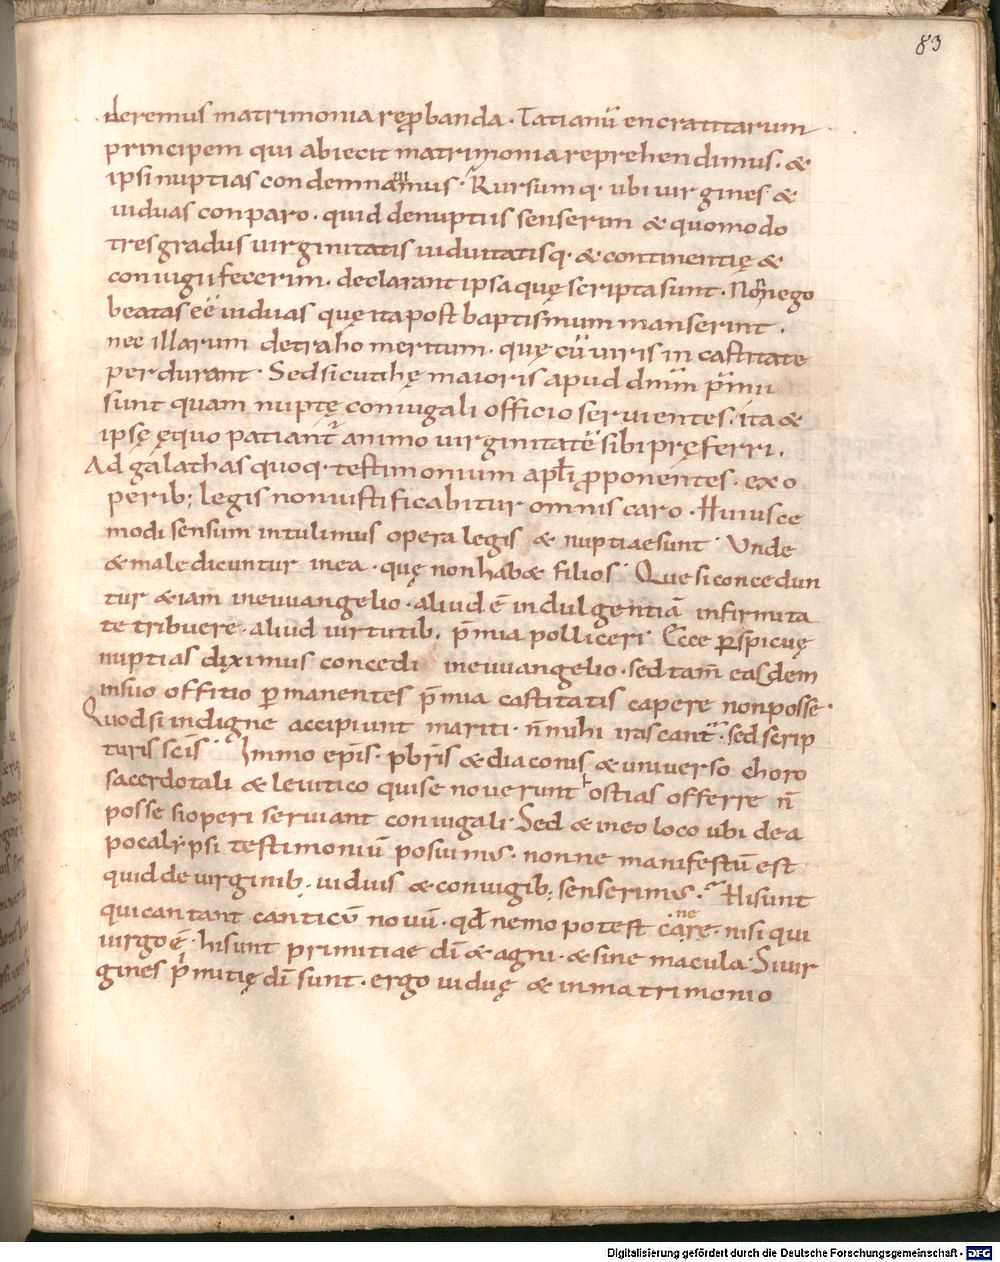 83
deremus matrimonia rep̱banda · Tatianū encratitarum
principem qui abiecit matrimonia reprehendimus · &
ipsi nuptias condemnamus · Rursumq· ubi uirgines &
uiduas conparo · quid denuptiis senserim & quomodo
tres gradus uirginitatis uiduitatisq· & continentię &
coniugii fecerim · declarant ipsa quę scripta sunt · Non nego
beatas eē uiduas quę ita post baptismum manserint ·
nec illarum detraho meritum · quę cū uiris in castitate
perdurant · Sed sicut hę maioris apud dnm p̄mii
sunt quam nuptę coniugali officio seruientes · ita &
ipsę ęquo patiant animo uirginitatē sibi pręferri ·
Ad galathas quoq· testimonium apl̄i p̱ponentes · ex o
perib; legis non iustificabitur omnis caro · Huiusce
modi sensum intulimus opera legis & nuptiae sunt · Unde
& maledicuntur in ea · quę non hab& filios · Que si concedun
tur &iam in euuangelio · aliud ē indulgentiā infirmita
te tribuere · aliud uirtutib; p̄mia polliceri Ecce ꝑspicuę
nuptias diximus concedi in euuangelio · sed tam̄ easdem
in suo offitio ꝑmanentes p̄mia castitatis capere non posse ·
Quod si indigne accipiunt mariti · n̄ mihi irascant · sed scrip
turis sc̄is · Immo ep̄is · pb̄ris & diaconis & uniuerso choro
sacerdotali & leuitico qui se nouerunt hostias offerre n̄
posse si operi seruiant coniugali · Sed & in eo loco ubi de a
pocalypsi testimoniū posuimus · nonne manifestū est
quid de uirginib; uiduis & coniugib; senserimus · Hi sunt
qui cantant canticū nouū · qd̄ nemo potest canere · nisi qui
uirgo ē · hi sunt primitiae dī & agni · & sine macula · Si uir
gines p̄mitię dī sunt · ergo uiduę & in matrimonio
Digitalisierung gefördert durch die Deutsche Forschungsgemeinschaft - DFG